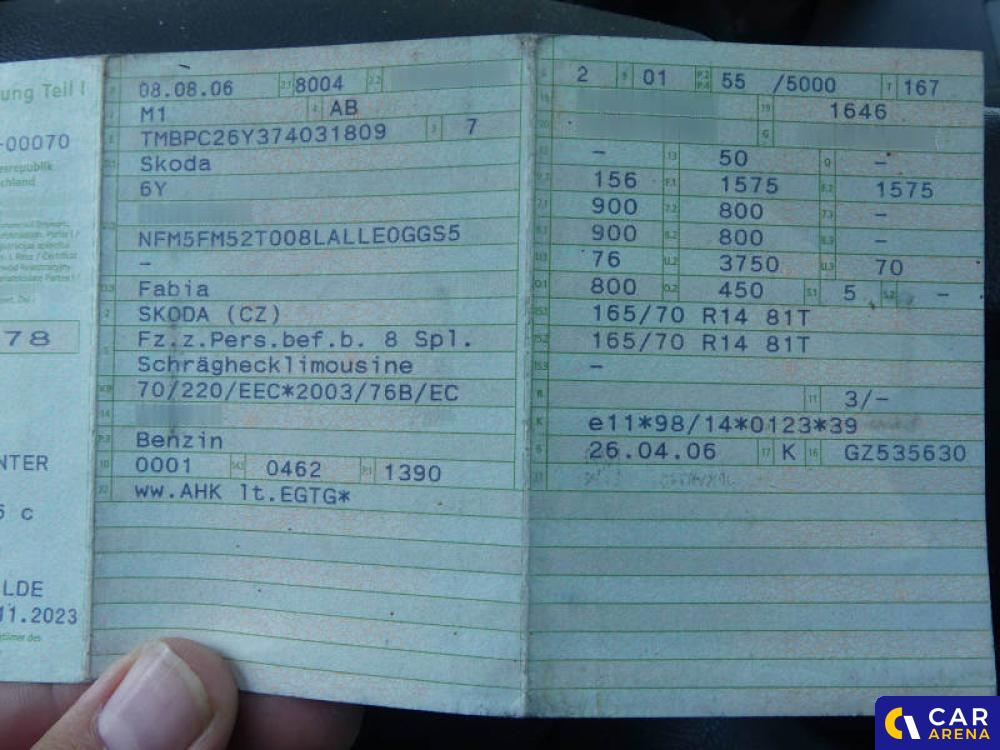 ung Teil I
-00070
78
NTER
5 c
LDE
11.2023
08.08.06 2.1 8004 2.2
M1 AB
TMBPC26Y374031809 3 7
Skoda
6Y
NFM5FM52T008LALLE0GGS5
–
Fabia
SKODA (CZ)
Fz.z.Pers.bef.b. 8 Spl.
Schräghecklimousine
70/220/EEC*2003/76B/EC
Benzin
0001 0462 1390
ww.AHK lt.EGTG*
2 9 01 P.2 P.4 55 /5000 T 167
1646
G
– 13 50 Q –
156 F.1 1575 F.2 1575
900 7.2 800 7.3 –
900 8.2 800 8.3 –
76 U.2 3750 U.3 70
800 O.2 450 S.1 5 S.2 –
165/70 R14 81T
165/70 R14 81T
–
R 11 3/–
K e11*98/14*0123*39
6 26.04.06 17 K 16 GZ535630
CAR
ARENA